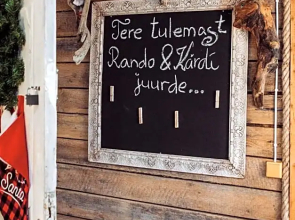 Tere tulemast
Rando & Kärdi
juurde...
Santa